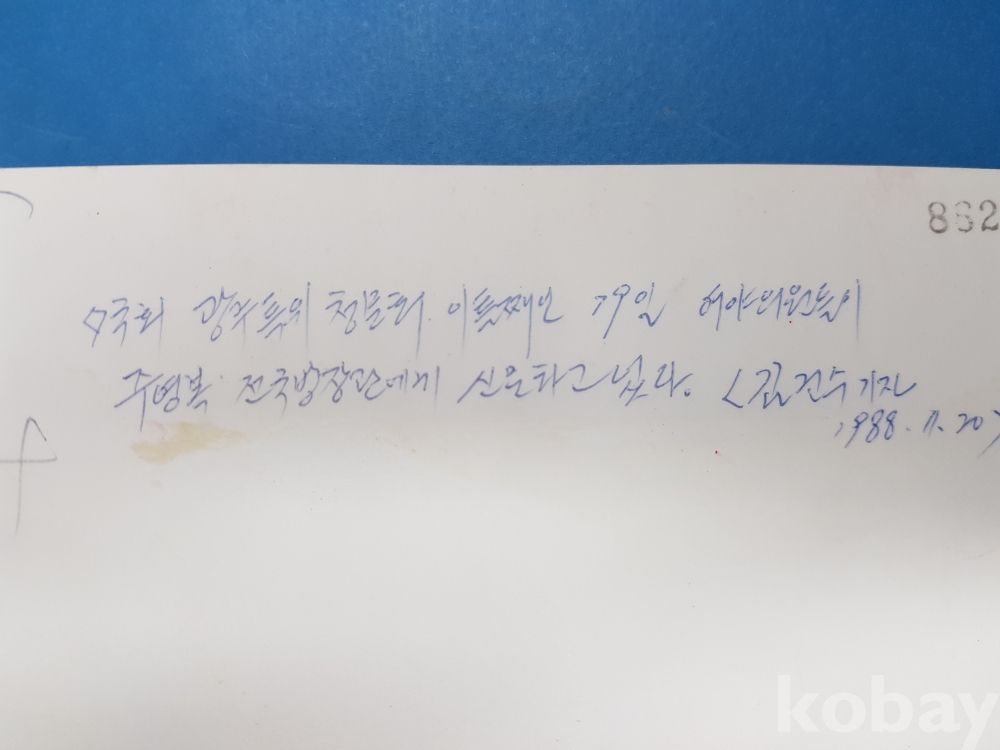 862
◇국회 광주특위 청문회 이틀째인 19일 여야의원들이
주영복 전국방장관에게 신문하고 있다. <김건수기자
1988. 11. 20>
kobay